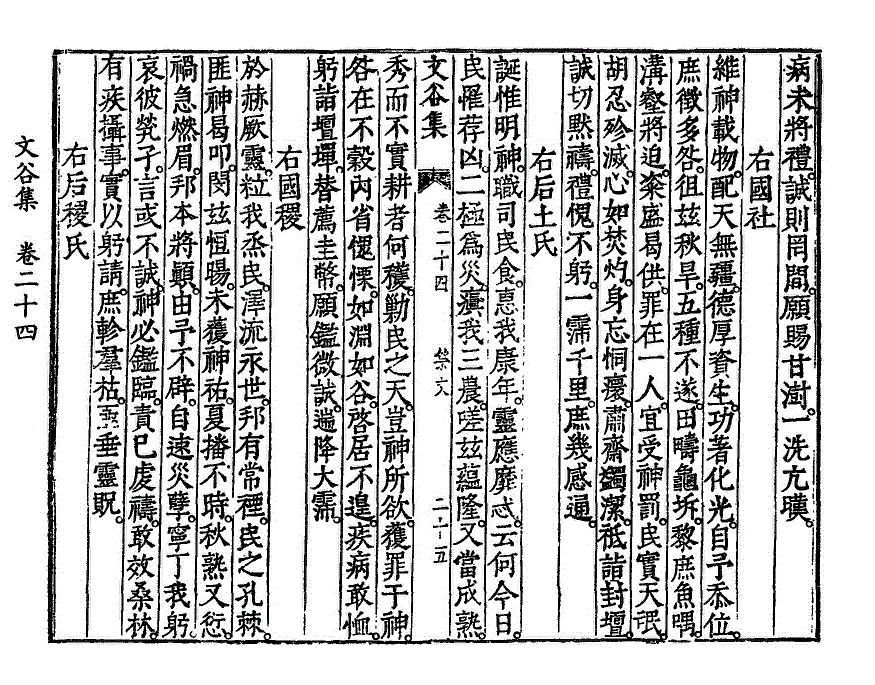 病未將禮誠則罔間願賜甘澍一洗亢暵
右國社
維神載物配天無疆德厚資生功著化光自予忝位
庶徵多咎徂玆秋旱五種不遂田疇龜坼黎庶魚喁
溝壑將迫粢盛曷供罪在一人宜受神罰民實天氓
胡忍殄滅心如焚灼身忘恫癏肅齋蠲潔祗詣封壇
誠切默禱禮愧不躬一霈千里庶幾感通
右后土氏
誕惟明神職司民食惠我康年靈應靡忒云何今日
民罹荐凶二極爲災㾮我三農嗟玆蘊隆又當成熟
文谷集 卷二十四 祭文 二十五
秀而不實耕者何穫勦民之天豈神所欲獲罪于神
咎在不穀內省傴慄如淵如谷啓居不遑疾病敢恤
躬詣壇墠替薦圭幣願鑑微誠遄降大霈
右國稷
於赫厥靈粒我烝民澤流永世邦有常禋民之孔棘
匪神曷叩閔玆恒暘未獲神祐夏播不時秋熟又愆
禍急燃眉邦本將顚由予不辟自速災孼寧丁我躬
哀彼煢子言或不誠神必鑑臨責已虔禱敢效桑林
有疾攝事實以躬請庶軫羣枯亟垂靈貺
右后稷氏
文谷集 卷二十四